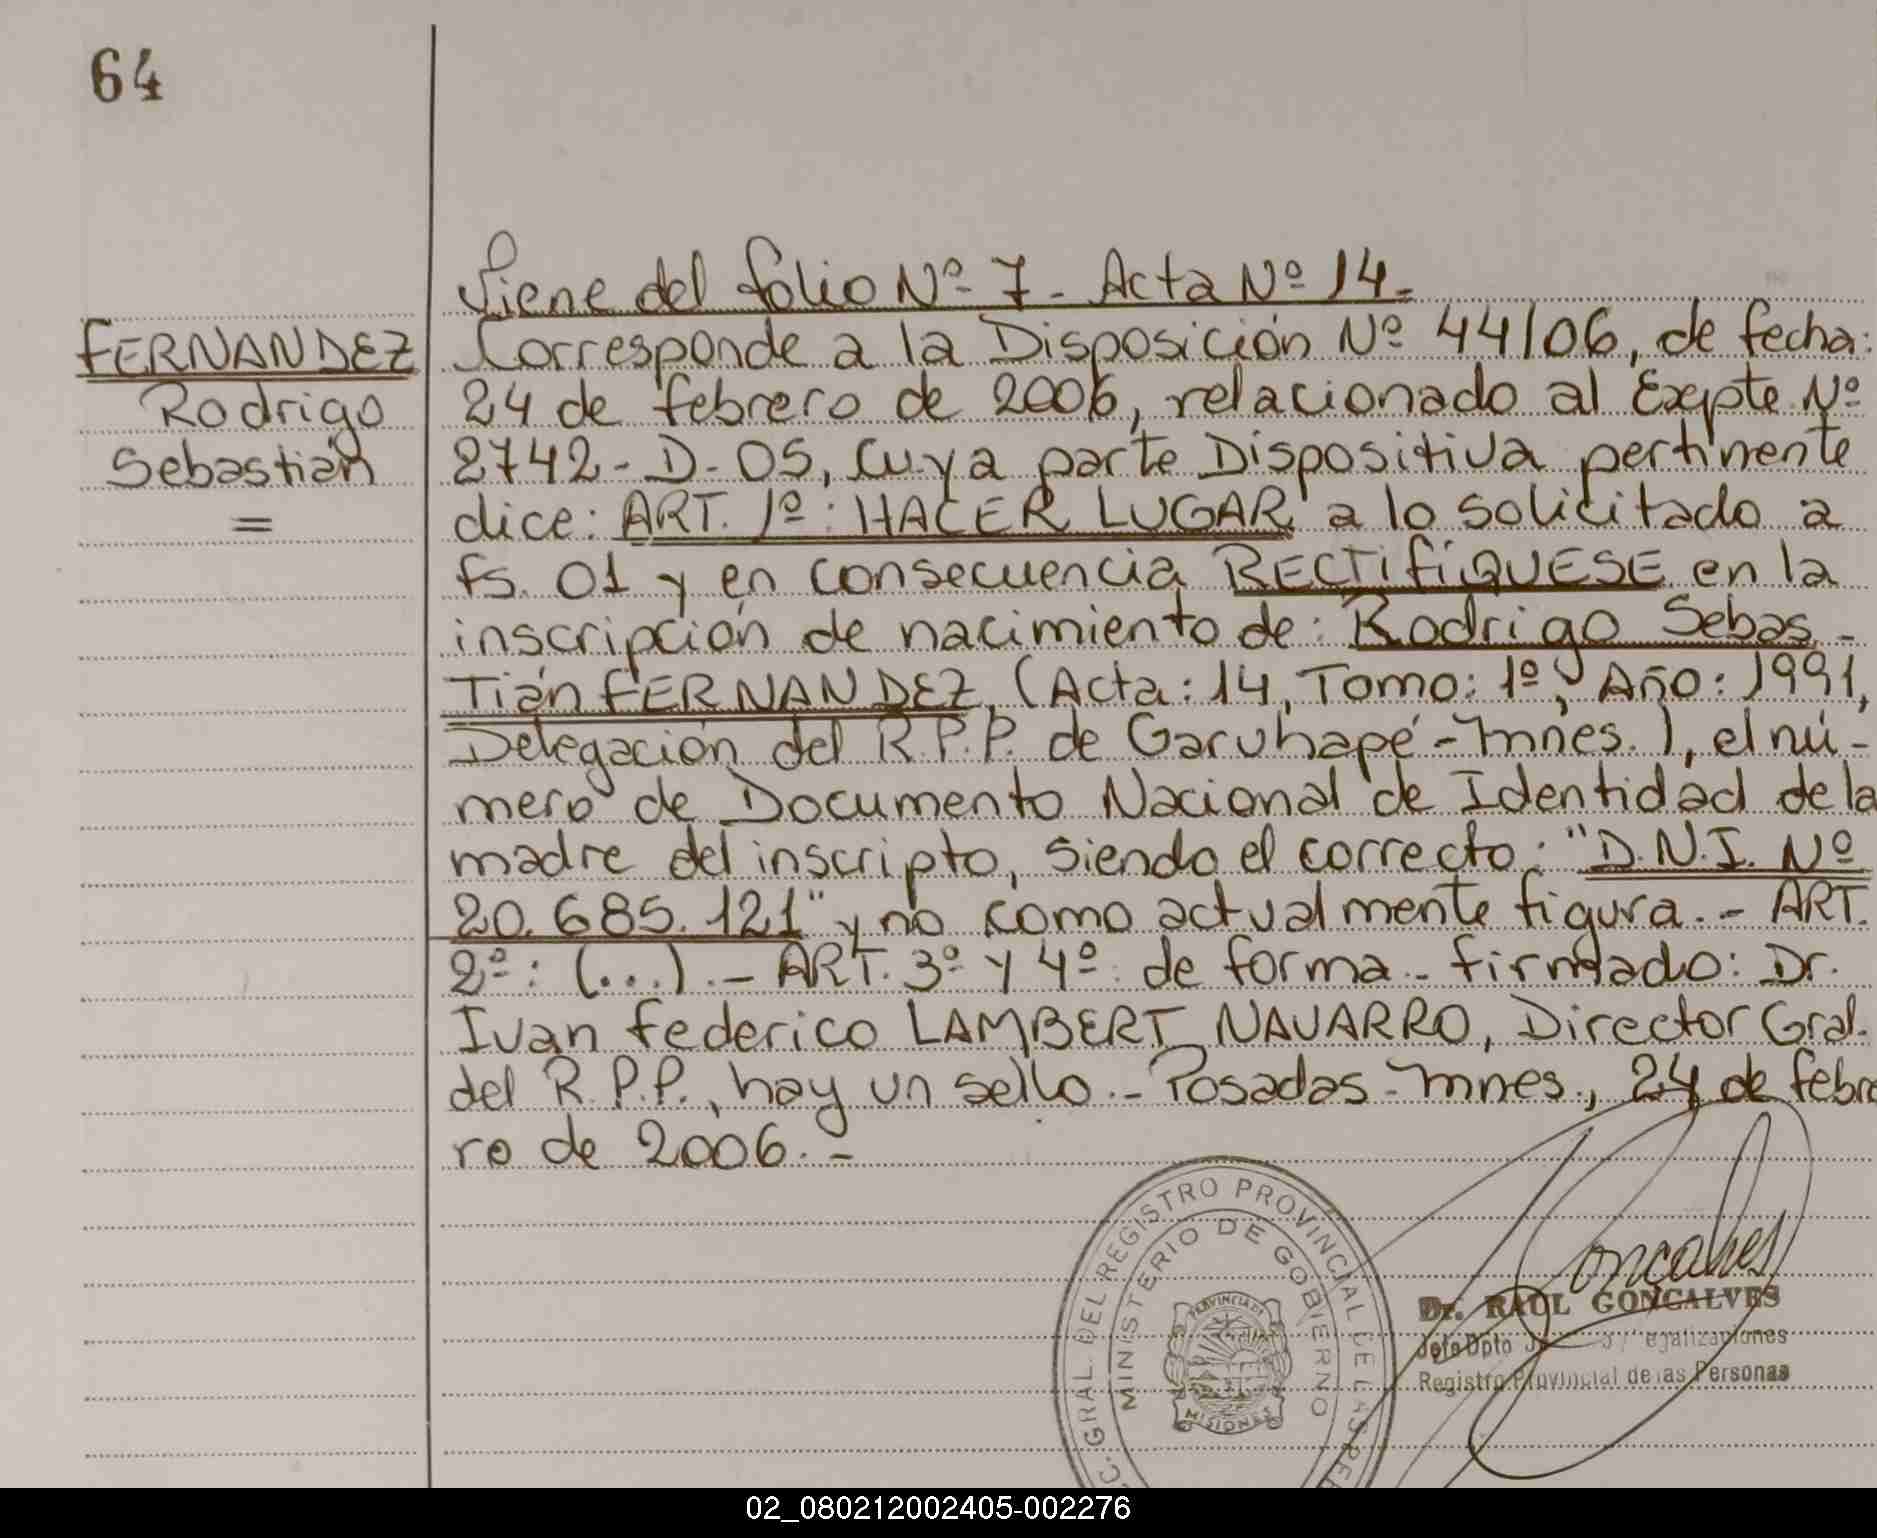 64
Viene del folio Nº 7 - Acta Nº 14 -
FERNANDEZ
Rodrigo
Sebastián
=
Corresponde a la Disposición Nº 44/06, de fecha:
24 de febrero de 2006, relacionado al Expte Nº
2742 - D - 05, Cuya parte Dispositiva pertinente
dice: ART. 1º: HACER LUGAR a lo solicitado a
fs. 01 y en consecuencia RECTIFÍQUESE en la
inscripción de nacimiento de: Rodrigo Sebas -
Tián FERNANDEZ, (Acta: 14, Tomo: 1º, Año: 1991,
Delegación del R.P.P. de Garuhapé - Mnes.), el nú -
mero de Documento Nacional de Identidad de la
madre del inscripto, siendo el correcto: "D.N.I. Nº
20.685.121" y no como actualmente figura. - ART.
2º: (...). - ART. 3º y 4º: de forma - firmado: Dr.
Ivan Federico LAMBERT NAVARRO, Director Gral.
del R.P.P., hay un sello. - Posadas - Mnes., 24 de febre
ro de 2006. -
C. GRAL. DEL REGISTRO PROVINCIAL DE LAS PER
MINISTERIO DE GOBIERNO
PROVINCIA DE
MISIONES
Gonçalves
Dr. RAUL GONÇALVES
Jefe Dpto egalizaciones
Registro Provincial de las Personas
02_080212002405-002276